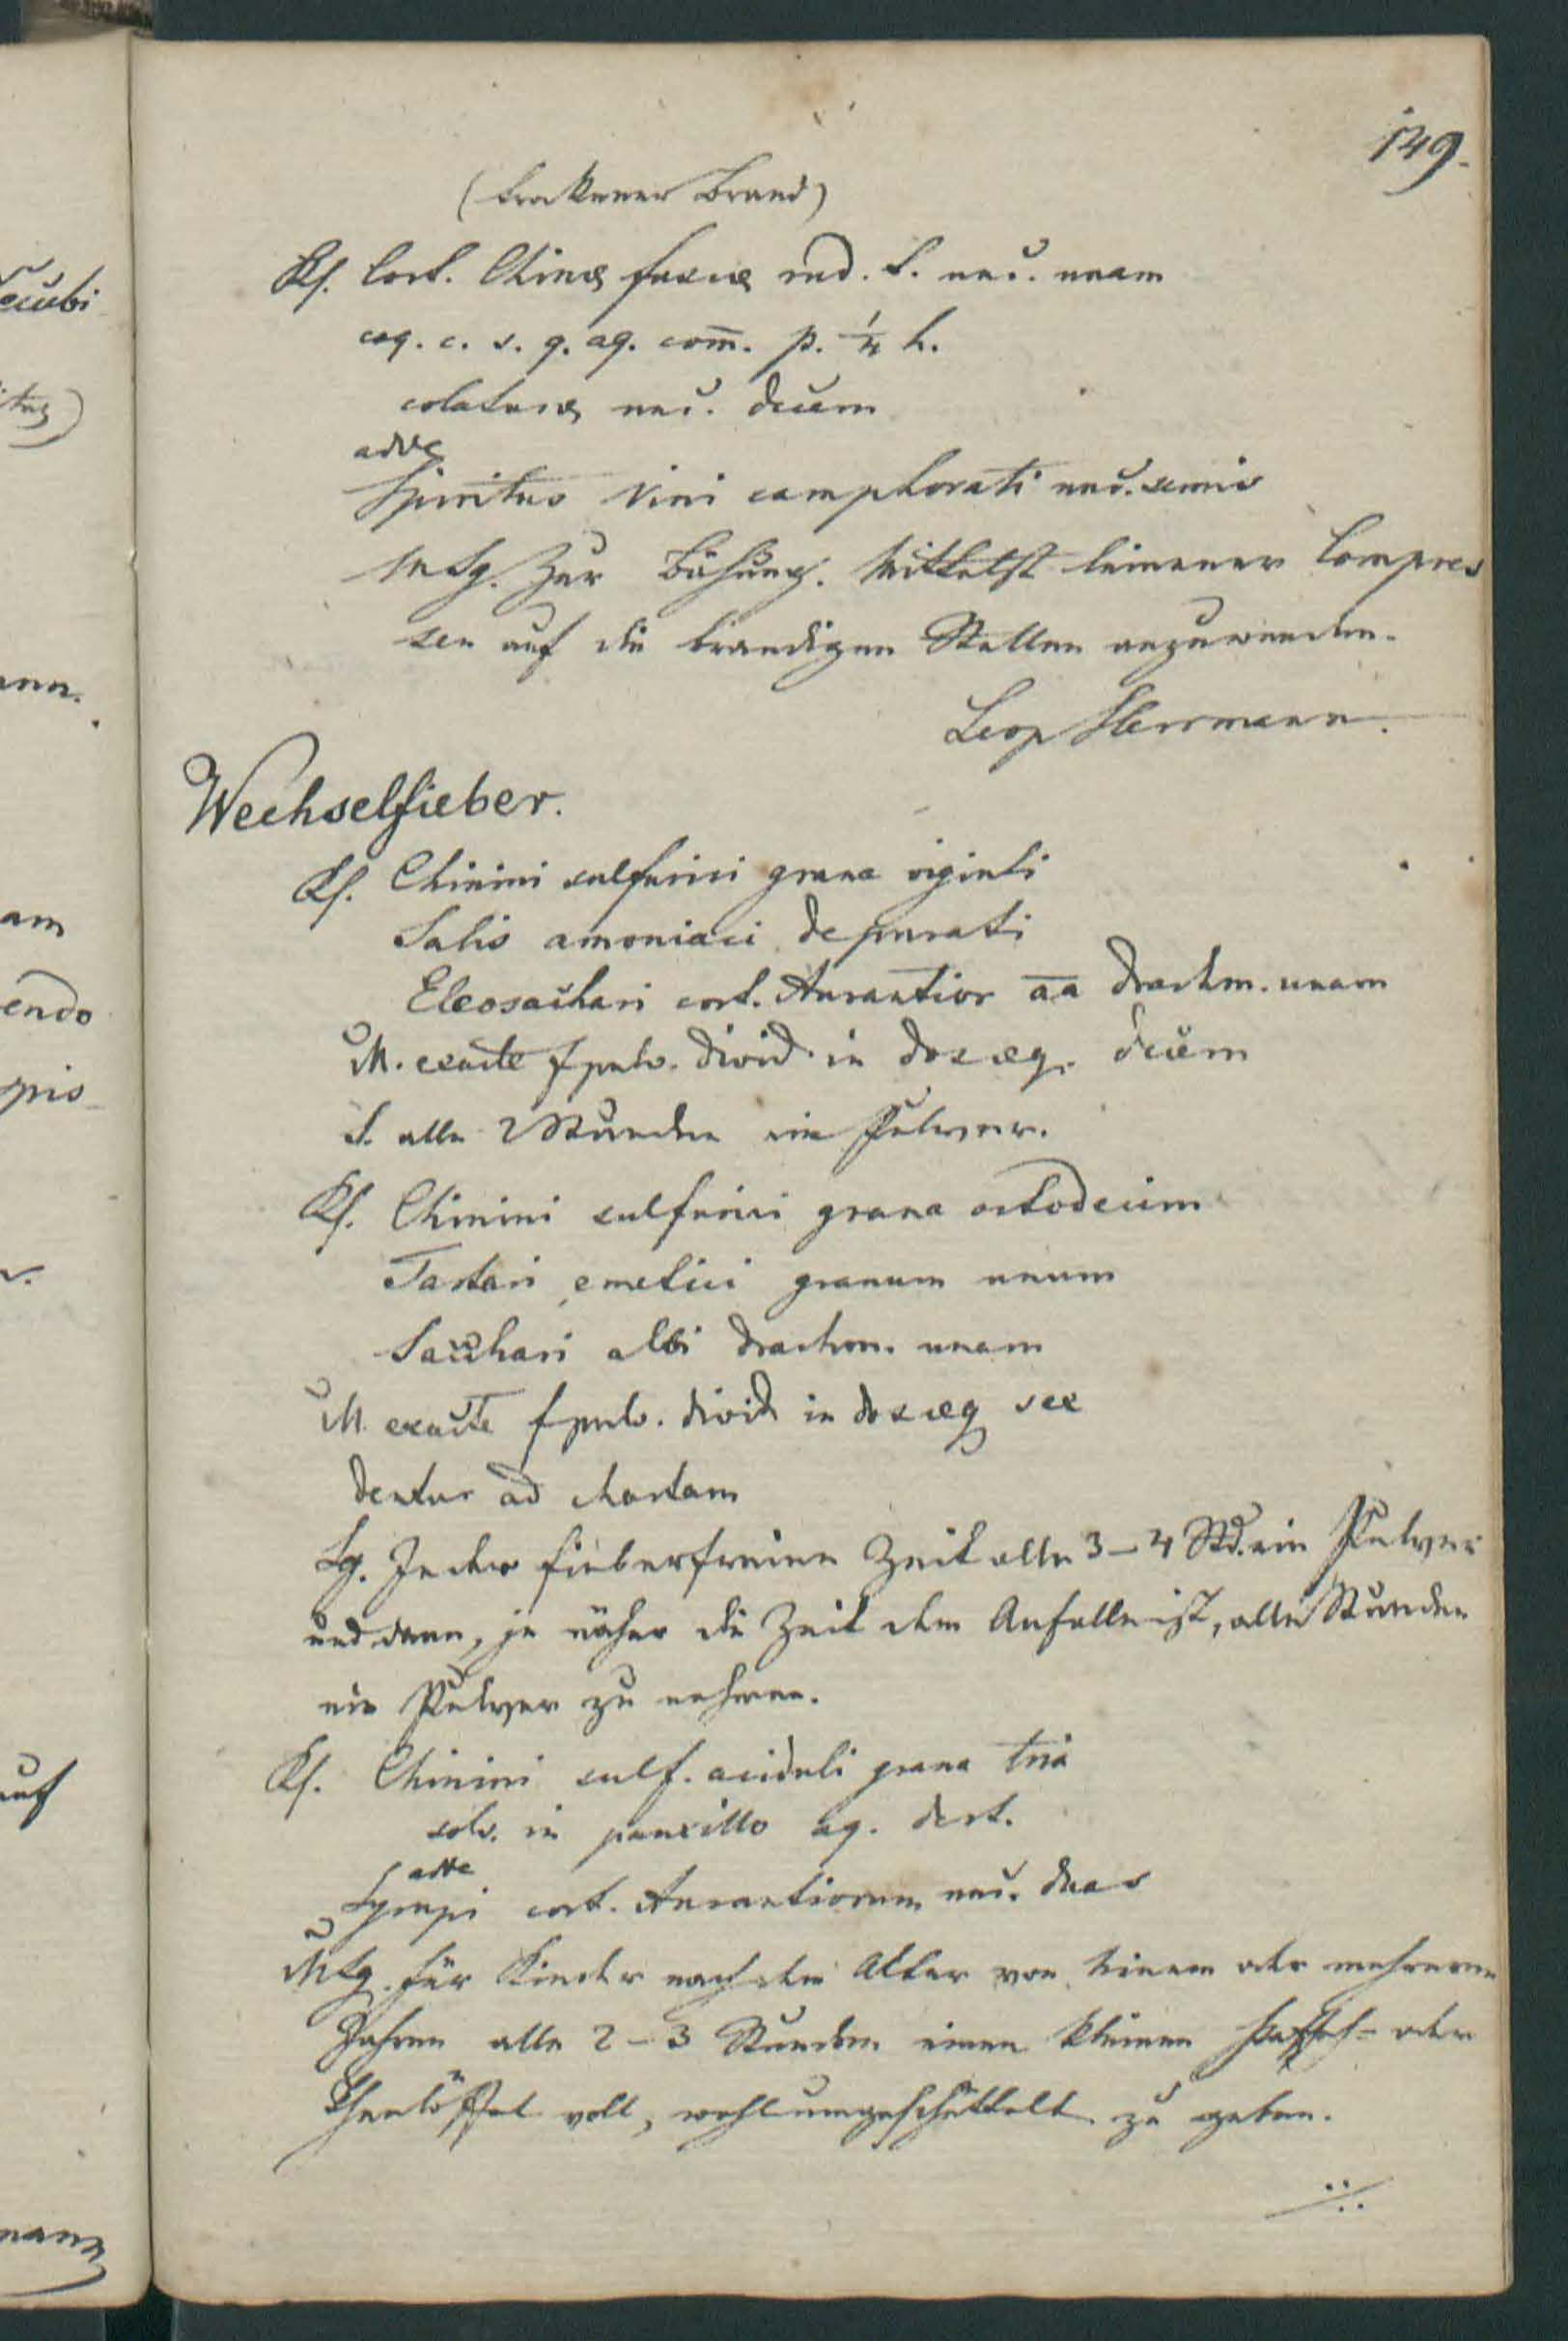 149.
(trockener Brand)
Rf. Cort. Chinæ fuscæ rud. t. unc. unam
coq. c. s. q. aq. com̄. p. ¼ h.
colaturæ unc. decem
adde
Spiritus Vini camphorati unc. semis
MSg. Zur Bähung. Mittelst leinener Compres
sen auf die brandigen Stellen anzuwenden.
Leop Herrmann.
Wechselfieber.
Rf. Chinini sulfurici grana viginti
Salis amoniaci depurati
Eleosachari cort. Aurantior āā drachm. unam
M. exacte f pulv. divid. in dos æq. decem
S. alle 2 Stunden ein Pulver.
Rf. Chinini sulfurici grana octodecim
Tartari emetici granum unum
Sacchari albi drachm. unam
M. exacte f pulv. divid in dos æq sex
dentur ad chartam
Sg. In der fieberfreien Zeit alle 3–4 Std. ein Pulver
und dann, je näher die Zeit dem Anfalle ist, alle Stunden
ein Pulver zu nehmen.
Rf. Chinini sulf. aciduli grana tria
solv. in pauxillo aq. dest.
adde
Syrupi cort. Aurantiorum unc. duas
MSg. für Kinder nach dem Alter von einem oder mehreren
Jahren alle 2–3 Stunden einen kleinen Kaffeh- oder
Theelöffel voll, wohlumgeschüttelt zu geben.